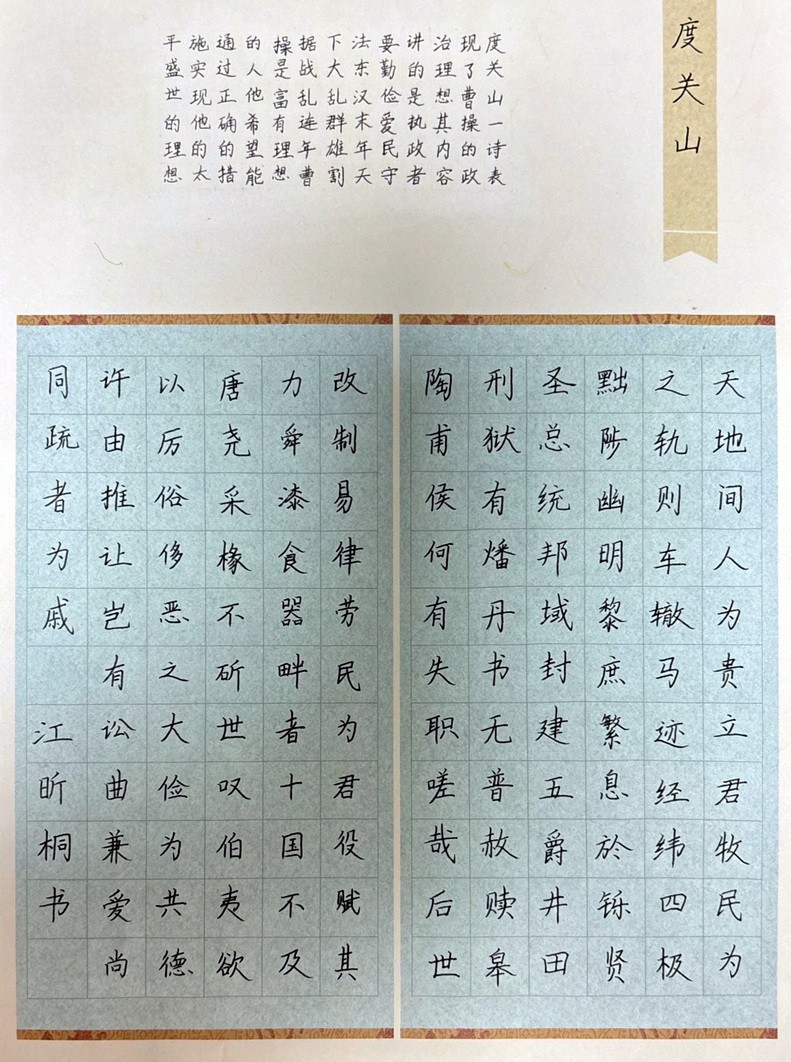 度关山
度关山一诗表
现了曹操的政
治理想其内容
讲的是执政者
要勤俭爱民守
法东汉末年天
下大乱群雄割
据战乱连年曹
操是富有理想
的人他希望能
通过正确的措
施实现他的太
平盛世的理想
天地间人为贵立君牧民为
之轨则车辙马迹经纬四极
黜陟幽明黎庶繁息於铄贤
圣总统邦域封建五爵井田
刑狱有燔丹书无普赦赎皋
陶甫侯何有失职嗟哉后世
改制易律劳民为君役赋其
力舜漆食器畔者十国不及
唐尧采椽不斫世叹伯夷欲
以厉俗侈恶之大俭为共德
许由推让岂有讼曲兼爱尚
同疏者为戚 江昕桐书